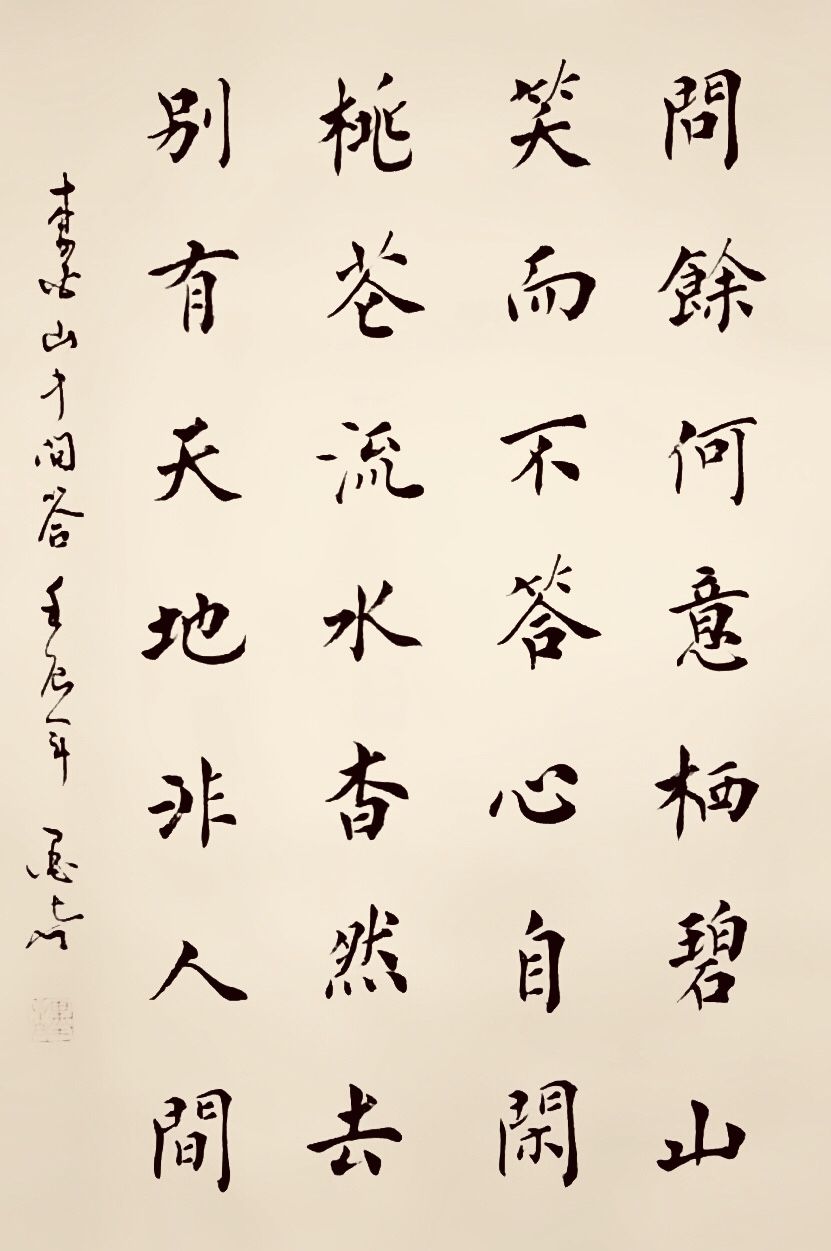 問餘何意栖碧山
笑而不答心自閑
桃花流水杳然去
別有天地非人間
李白山中問答 壬辰年